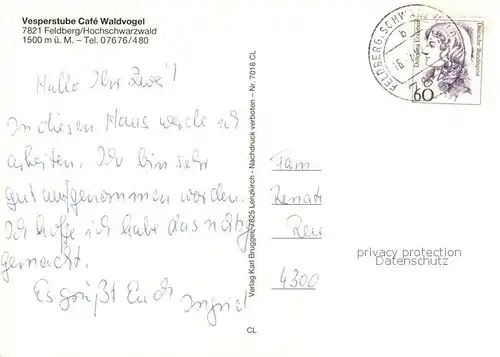 Vesperstube Café Waldvogel
7821 Feldberg/Hochschwarzwald
1500 m ü. M. – Tel. 07676/480
Hallo Ihr Zwei!
In diesen Haus werde ich
arbeiten. Ich bin sehr
gut aufgenommen worden.
Ich hoffe ich habe das richtig
gemacht.
Es grüßt Euch Ingrid
Verlag Karl Brugger, 7825 Lenzkirch - Nachdruck verboten - Nr. 7018 CL
CL
FELDBERG, SCHWARZWALD
b
Dorothea Erxleben
Deutsche Bundespost
60
Fam
Renat
4300
privacy protection
Datenschutz